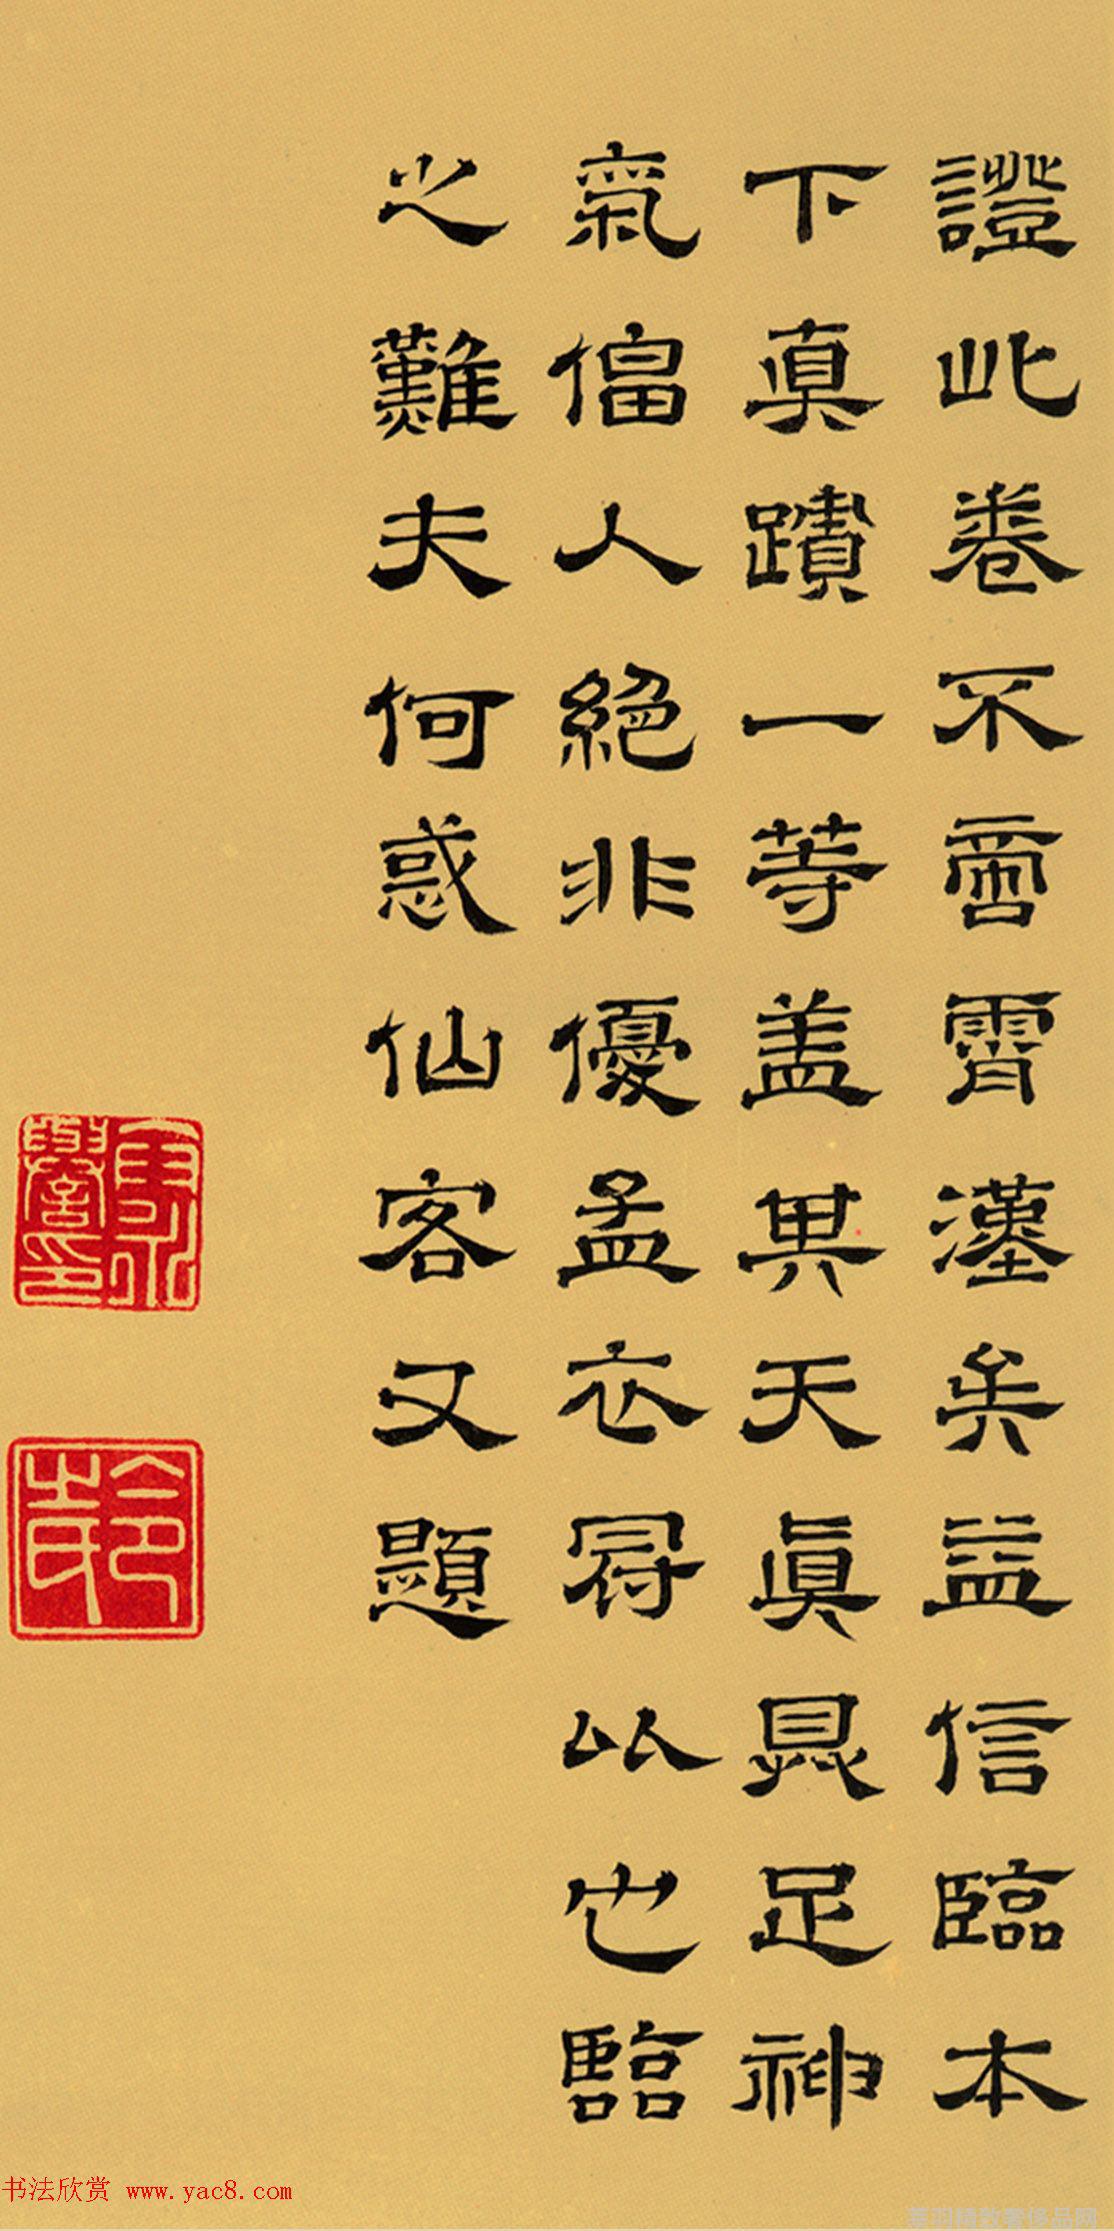 證此卷不啻霄漢矣益信臨本
下真蹟一等盖異天真具足神
氣偪人絕非優孟衣冠以也臨
之難夫何惑仙客又題
书法欣赏 www.yac8.com